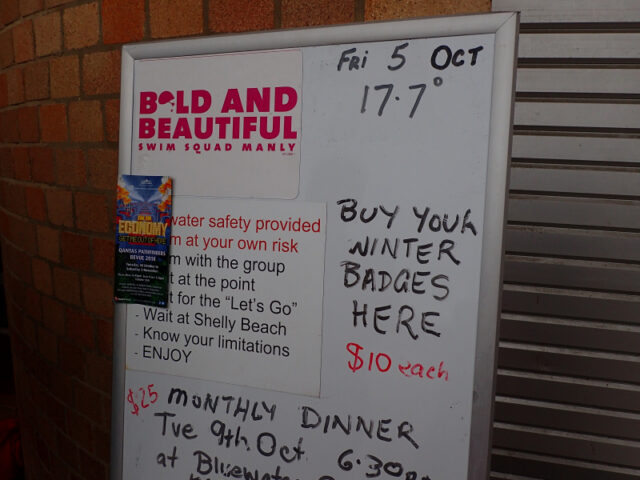 FRI 5 OCT
17.7°
BOLD AND
BEAUTIFUL
SWIM SQUAD MANLY
water safety provided
at your own risk
with the group
at the point
for the “Let's Go”
- Wait at Shelly Beach
- Know your limitations
- ENJOY
ECONOMY
GET ME OUT OF HERE
QANTAS PATHFINDERS
REVUE 2018
BUY YOUR
WINTER
BADGES
HERE
$10 each
$25 MONTHLY DINNER
Tue 9th Oct 6.30
at Bluewater